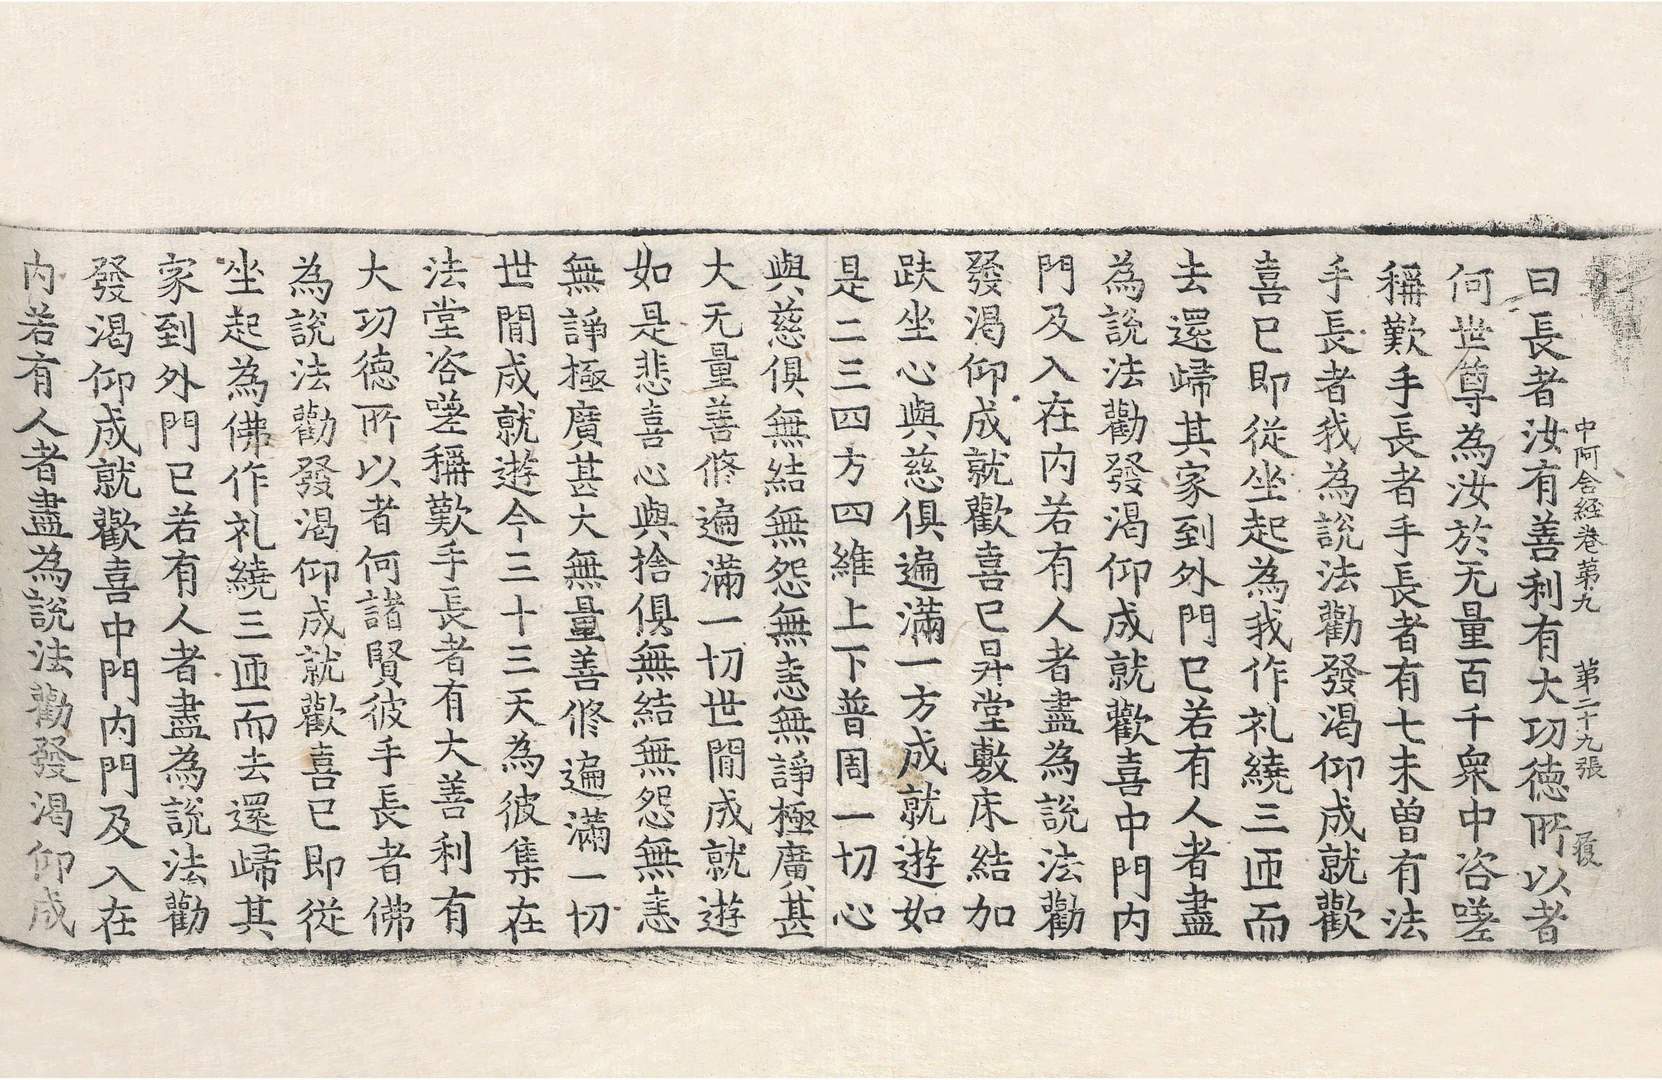 中阿含経卷第九 第二十九張 履
曰長者汝有善利有大功徳所以者
何世尊為汝於无量百千衆中咨嗟
稱歎手長者手長者有七未曾有法
手長者我為說法勸發渴仰成就歡
喜已即從坐起為我作礼繞三匝而
去還歸其家到外門已若有人者盡
為說法勸發渴仰成就歡喜中門内
門及入在内若有人者盡為說法勸
發渴仰成就歡喜已昇堂敷床結加
趺坐心與慈俱遍滿一方成就遊如
是二三四方四維上下普周一切心
與慈俱無結無怨無恚無諍極廣甚
大无量善修遍滿一切世間成就遊
如是悲喜心與捨俱無結無怨無恚
無諍極廣甚大無量善修遍滿一切
世間成就遊今三十三天為彼集在
法堂咨嗟稱歎手長者有大善利有
大功徳所以者何諸賢彼手長者佛
為說法勸發渴仰成就歡喜已即從
坐起為佛作礼繞三匝而去還歸其
家到外門已若有人者盡為說法勸
發渴仰成就歡喜中門内門及入在
内若有人者盡為說法勸發渴仰成